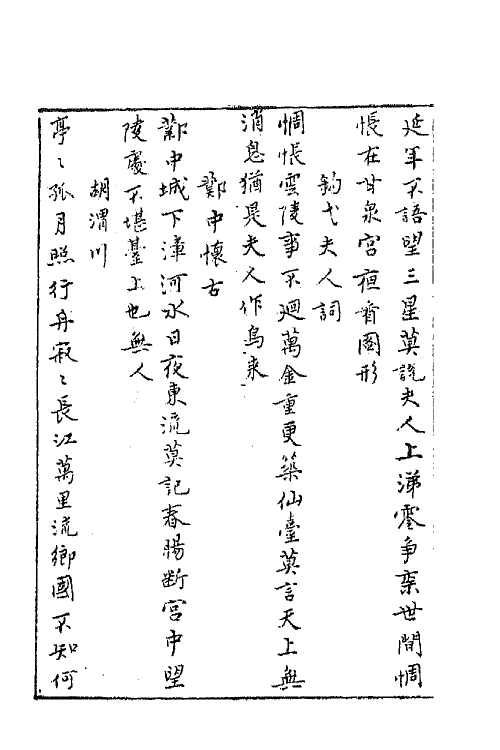 延年不語望三星莫說夫人上涕零争柰世間惆
悵在甘泉宫夜看圖形
鈎弋夫人詞
惆悵雲陵事不迴萬金重更築仙臺莫言天上無
消息猶是夫人作鳥来
鄴中懷古
鄴中城下漳河水日夜東流莫記春腸斷宫中望
陵處不堪臺上也無人
胡渭川
亭〻孤月照行舟寂〻長江萬里流鄉國不知何